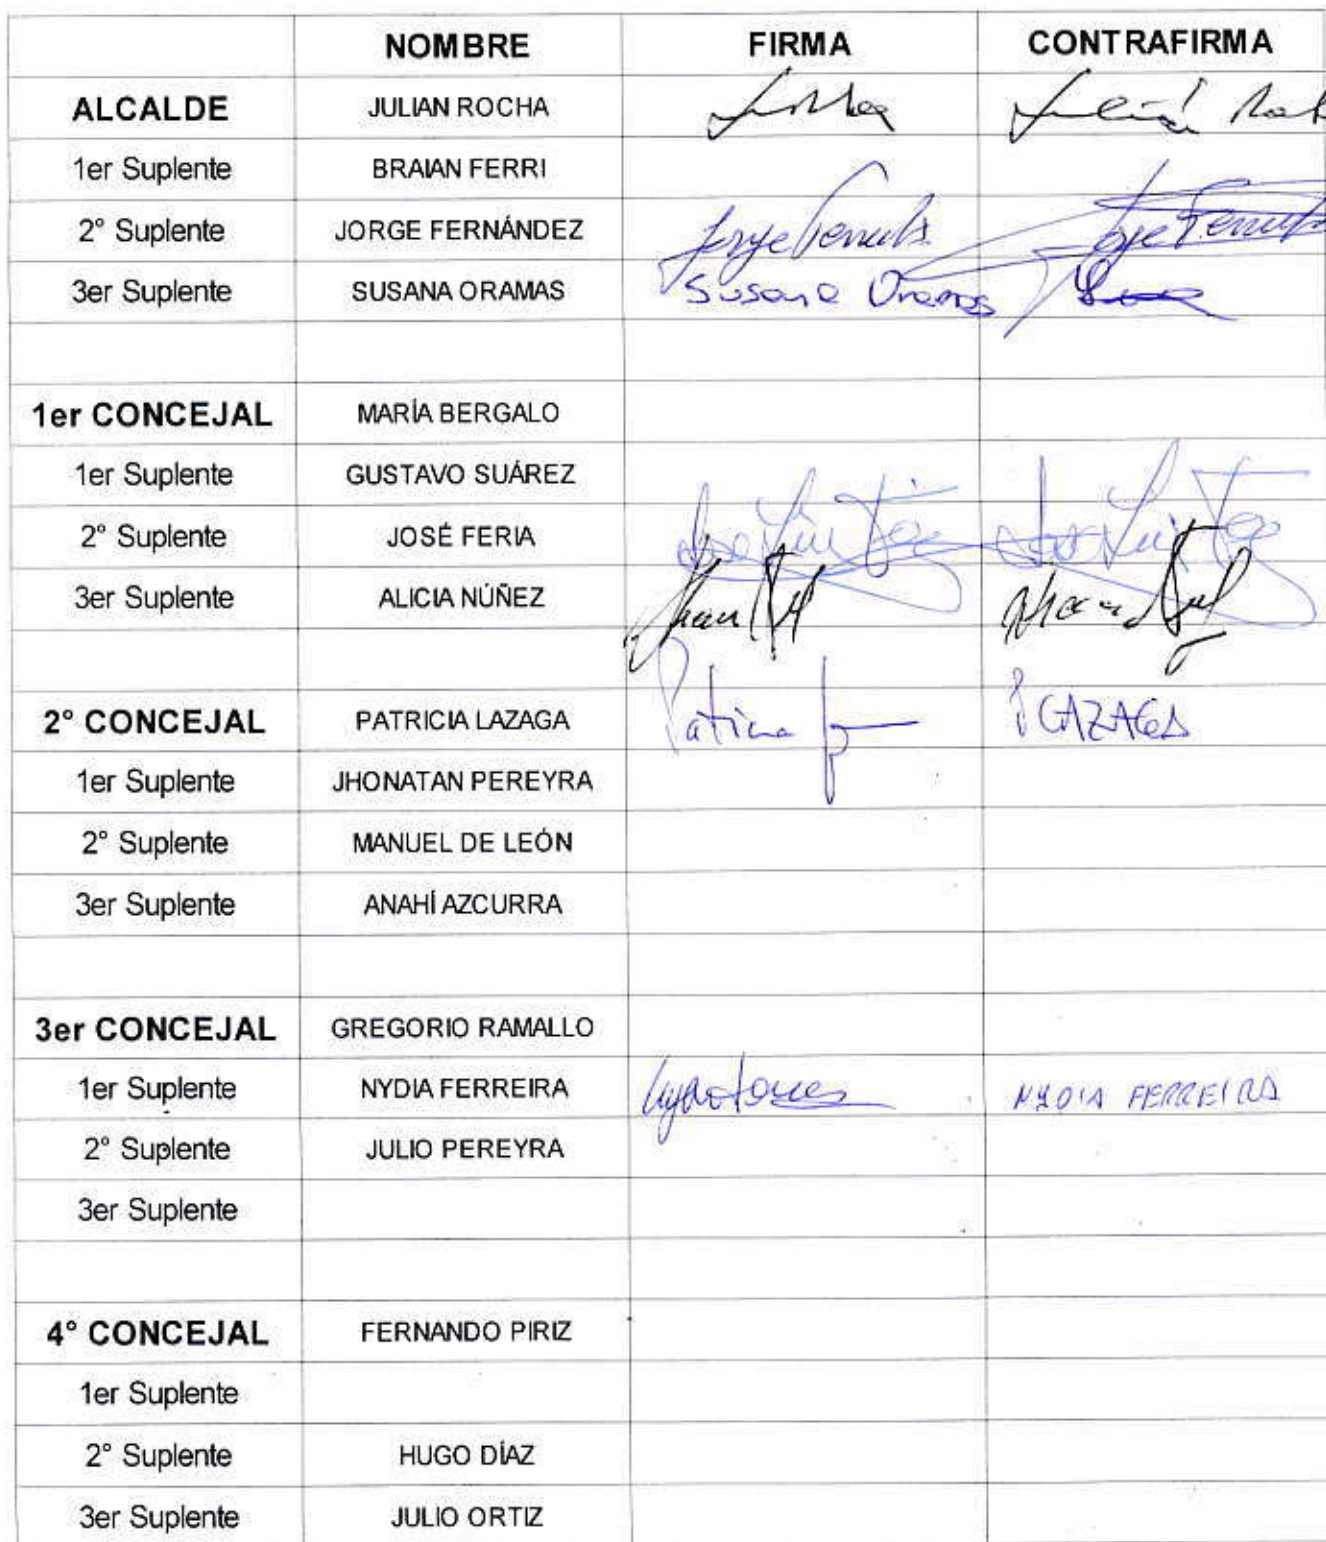 NOMBRE FIRMA CONTRAFIRMA
ALCALDE JULIAN ROCHA
1er Suplente BRAIAN FERRI
2° Suplente JORGE FERNÁNDEZ Jorge
3er Suplente SUSANA ORAMAS Susana Oramas
1er CONCEJAL MARÍA BERGALO
1er Suplente GUSTAVO SUÁREZ
2° Suplente JOSÉ FERIA
3er Suplente ALICIA NÚÑEZ
2° CONCEJAL PATRICIA LAZAGA
1er Suplente JHONATAN PEREYRA
2° Suplente MANUEL DE LEÓN
3er Suplente ANAHÍ AZCURRA
3er CONCEJAL GREGORIO RAMALLO
1er Suplente NYDIA FERREIRA NYDIA FERREIRA
2° Suplente JULIO PEREYRA
3er Suplente
4° CONCEJAL FERNANDO PIRIZ
1er Suplente
2° Suplente HUGO DÍAZ
3er Suplente JULIO ORTIZ